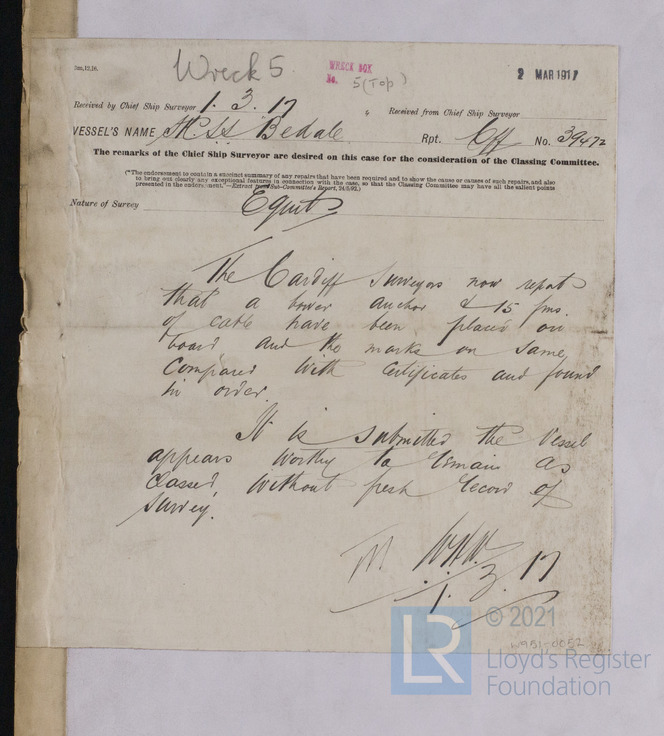 5m,12,16.
Wreck 5
WRECK BOX
No. 5 (Top)
2 MAR 1917
Received by Chief Ship Surveyor 1. 3. 17
Received from Chief Ship Surveyor
VESSEL'S NAME SS Bedale Rpt. Cff No. 39472
The remarks of the Chief Ship Surveyor are desired on this case for the consideration of the Classing Committee.
("The endorsement to contain a succinct summary of any repairs that have been required and to show the cause or causes of such repairs, and also
to bring out clearly any exceptional features in connection with the case, so that the Classing Committee may have all the salient points
presented in the endorsement."—Extract from Sub-Committee's Report, 24/5/92.)
Nature of Survey Equipt
The Cardiff Surveyors now report
that a bower anchor & 15 fms.
of cable have been placed on
board and the marks on same,
compared with Certificates and found
in order.
It is submitted the Vessel
appears worthy to remain as
classed, without fresh record of
survey.
M W.H.W.
1. 3. 17
© 2021
W981-0052
LR
Lloyd's Register
Foundation